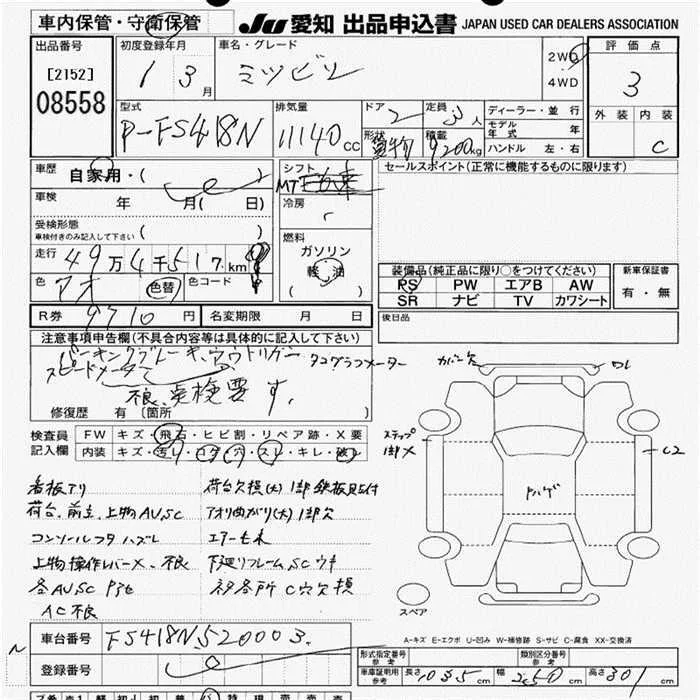 車内保管・守衛保管
JU 愛知 出品申込書 JAPAN USED CAR DEALERS ASSOCIATION
出品番号
[2152]
08558
初度登録年月
1 3月
車名・グレード
ミツビシ
2WD
4WD
評価点
3
外装 内装
C
型式
P-FS418N
排気量
11140 CC
ドア
2
形状
貨物
定員
3人
積載
9200kg
ディーラー・並行
モデル年式 年
ハンドル 左・右
車歴
自家用・( )
車検 年 月( 日)
受検形態
車検付きのみ記入して下さい ( )
走行 49万4千517km
色 アオ 色替 色コード
シフト
MT
冷房
燃料
ガソリン
軽油
( )
セールスポイント(正常に機能するものに限ります)
装備品(純正品に限り○をつけてください)
PS PW エアB AW
SR ナビ TV カワシート
新車保証書
有・無
R券 9710円 名変期限 月 日
後日品
注意事項申告欄(不具合内容等は具体的に記入して下さい)
パーキングブレーキ、アウトリガー
スピードメーター タコグラフメーター
不良、点検要す。
修復歴 有 〔箇所 〕
検査員記入欄
FW キズ・飛石・ヒビ割・リペア跡・X要
内装 キズ・汚レ・コゲ・穴・スレ・キレ・破レ
カバー欠
ワレ
ステップ
1部X
C2
トハゲ
スペア
看板アリ
荷台欠損(大)1部鉄板貼付
荷台、前立、上物AU,SC
アオリ曲がり(大)1部欠
コンソールフタハズレ
エアーモレ
上物操作レバーX、不良
下廻りフレームSCウキ
各AU,SC
各所C穴欠損
AC不良
A-キズ E-エクボ U-凹み W-補修跡 S-サビ C-腐食 XX-交換済
車台番号 FS418N520003
登録番号
形式指定番号 参考
類別区分番号 参考
車庫証明用 参考 長さ 1035cm 幅 250cm 高さ 301cm